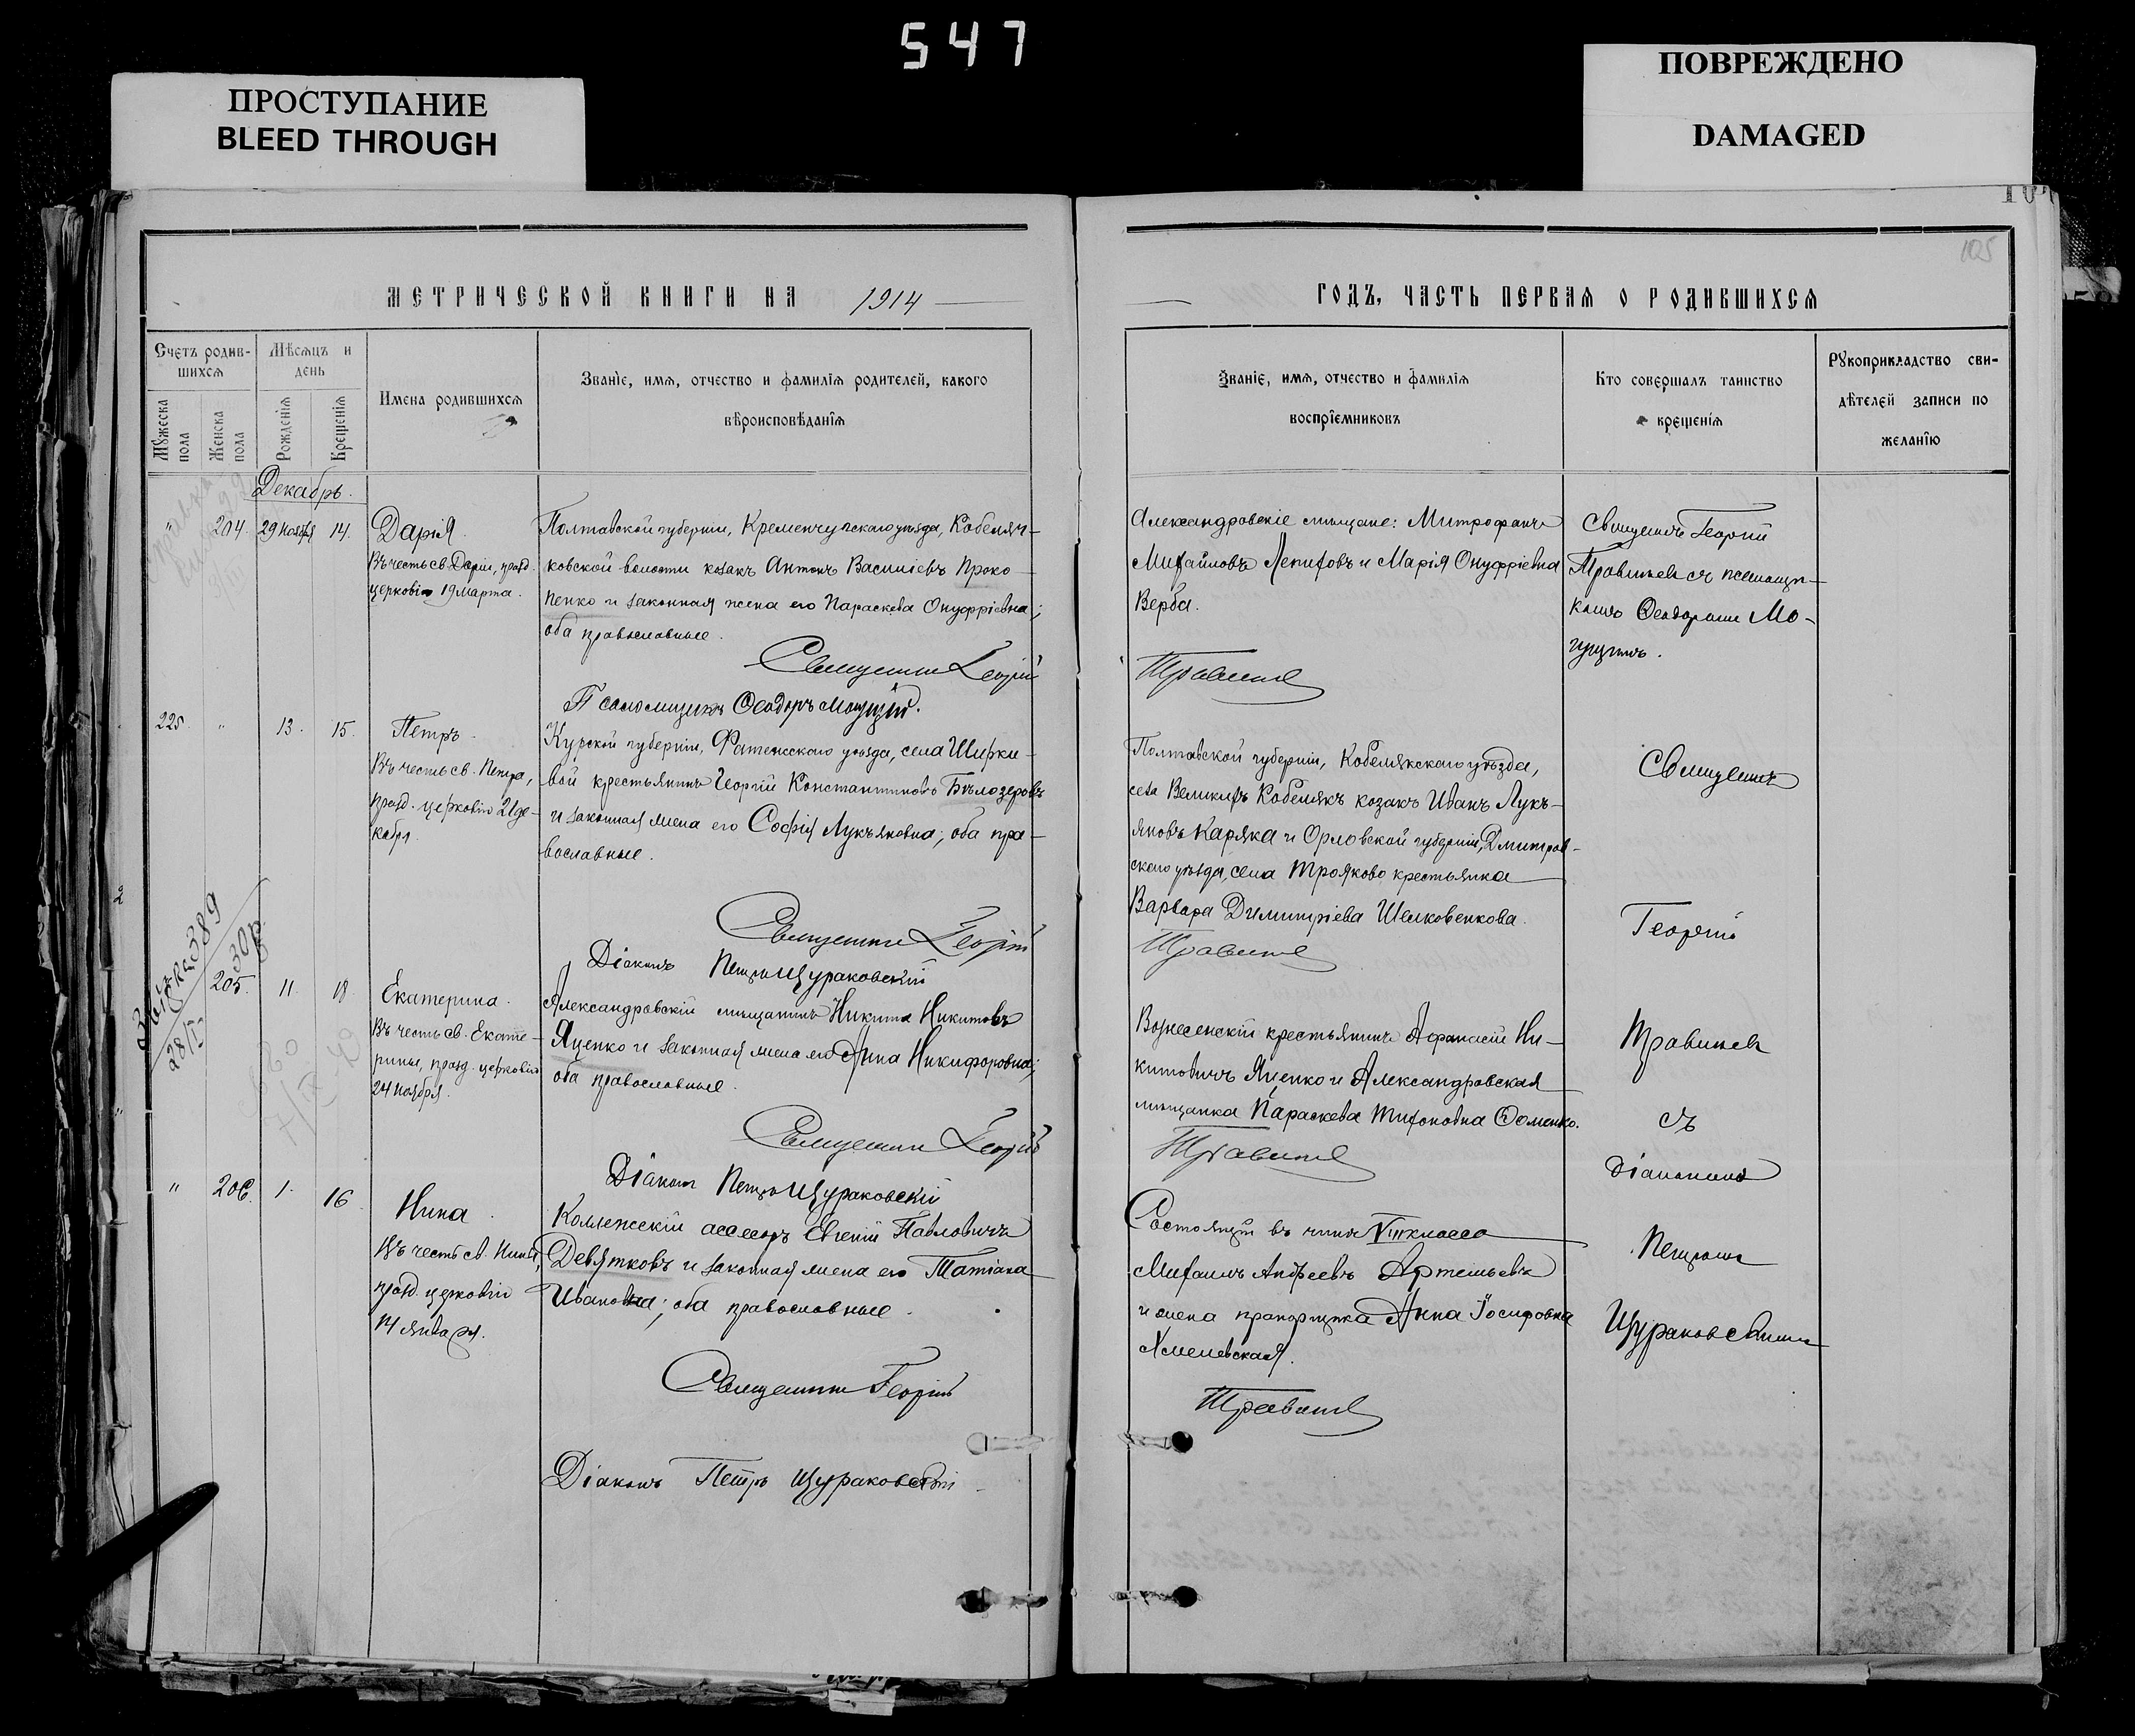 547
ПРОСТУПАНИЕ
BLEED THROUGH
ПОВРЕЖДЕНО
DAMAGED
105
МЕТРИЧЕСКОЙ КНИГИ НА 1914
ГОДЪ, ЧАСТЬ ПЕРВАЯ О РОДИВШИХСЯ
Счетъ родив-
шихся
Мѣсяцъ и
день
Мужеска пола
Женска пола
Рожденія
Крещенія
Имена родившихся
Званіе, имя, отчество и фамилія родителей, какого
вѣроисповѣданія
Званіе, имя, отчество и фамилія
воспріемниковъ
Кто совершалъ таинство
крещенія
Рукоприкладство сви-
дѣтелей записи по
желанію
Декабрь.
" 204. 29 ноября 14.
Дарія.
Въ честь св. Даріи, празд.
церковію 19 марта.
Полтавской губерніи, Кременчугскаго уѣзда, Кобеляч-
ковской волости козакъ Антонъ Василіевъ Проко-
пенко и законная жена его Параскева Онуфріевна;
оба православные.
Священникъ Георгій
Псаломщикъ Ѳеодоръ
Александровскіе мѣщане: Митрофанъ
Михайловъ Лепиховъ и Марія Онуфріевна
Верба.
Травинев
Священникъ Георгій
Травиневъ съ псаломщи-
комъ Ѳеодоромъ Мо-
225. " 13. 15.
Петръ.
Въ честь св. Петра,
празд. церковію 21 де-
кабря.
Курской губерніи, Фатежскаго уѣзда, села Ширко-
вой крестьянинъ Георгій Константиновъ Бѣлозеровъ
и законная жена его Софія Лукъяновна; оба пра-
вославные.
Священникъ Георгій
Діаконъ Петръ Щураковскій
Полтавской губерніи, Кобелякскаго уѣзда,
села Великихъ Кобелякъ козакъ Иванъ Лукъ-
яновъ Каряка и Орловской губерніи, Дмитров-
скаго уѣзда, села Трояково крестьянка
Варвара Димитріева Шелковенкова.
Травинев
Священникъ
Георгій
Травиневъ
съ
Діакономъ
Петромъ
Щураковскимъ
389
28/X
30 р.
205. 11. 18.
Екатерина.
Въ честь св. Екате-
рины, празд. церковію
24 ноября.
Александровскій мѣщанинъ Никита Никитовъ
Яценко и законная жена его Анна Никифоровна;
оба православные.
Священникъ Георгій
Діаконъ Петръ Щураковскій
Вознесенскій крестьянинъ Афанасій Ни-
китовичъ Яценко и Александровская
мѣщанка Параскева Тихоновна Ѳоменко.
Травинев
" 206. 1. 16
Нина.
Въ честь св. Нины,
празд. церковію
14 января.
Коллежскій ассесоръ Евгеній Павловичъ
Девятковъ и законная жена его Татіана
Ивановна; оба православные.
Священникъ Георгій
Діаконъ Петръ Щураковскій
Состоящій въ чинѣ VIII класса
Михаилъ Андреевъ Артемьевъ
и жена прапорщика Анна Іосифовна
Хмелевская.
Травинев